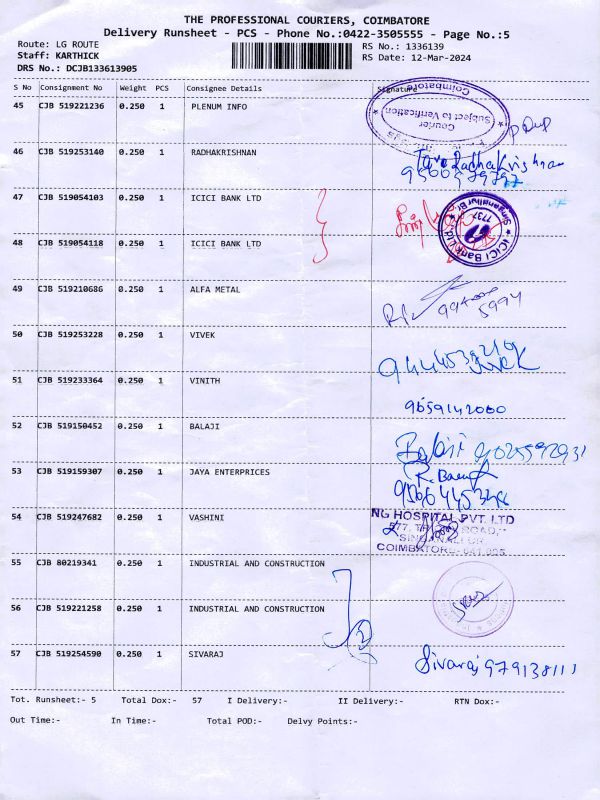 THE PROFESSIONAL COURIERS, COIMBATORE
Delivery Runsheet - PCS - Phone No.:0422-3505555 - Page No.:5
Route: LG ROUTE RS No.: 1336139
Staff: KARTHICK RS Date: 12-Mar-2024
DRS No.: DCJB133613905
S No Consignment No Weight PCS Consignee Details Signature
45 CJB 519221236 0.250 1 PLENUM INFO
Courier
Subject to Verification
Coimbatore
46 CJB 519253140 0.250 1 RADHAKRISHNAN
Radhakrishnan
47 CJB 519054103 0.250 1 ICICI BANK LTD
ICICI Bank Ltd
48 CJB 519054118 0.250 1 ICICI BANK LTD
49 CJB 519210686 0.250 1 ALFA METAL
50 CJB 519253228 0.250 1 VIVEK
51 CJB 519233364 0.250 1 VINITH
9659142000
52 CJB 519150452 0.250 1 BALAJI
Balaji
53 CJB 519159307 0.250 1 JAYA ENTERPRICES
54 CJB 519247682 0.250 1 VASHINI
NG HOSPITAL PVT. LTD
577, ROAD,
SINGANALLUR
COIMBATORE-641 005
55 CJB 80219341 0.250 1 INDUSTRIAL AND CONSTRUCTION
56 CJB 519221258 0.250 1 INDUSTRIAL AND CONSTRUCTION
57 CJB 519254590 0.250 1 SIVARAJ
Sivaraj
Tot. Runsheet:- 5 Total Dox:- 57 I Delivery:- II Delivery:- RTN Dox:-
Out Time:- In Time:- Total POD:- Delvy Points:-